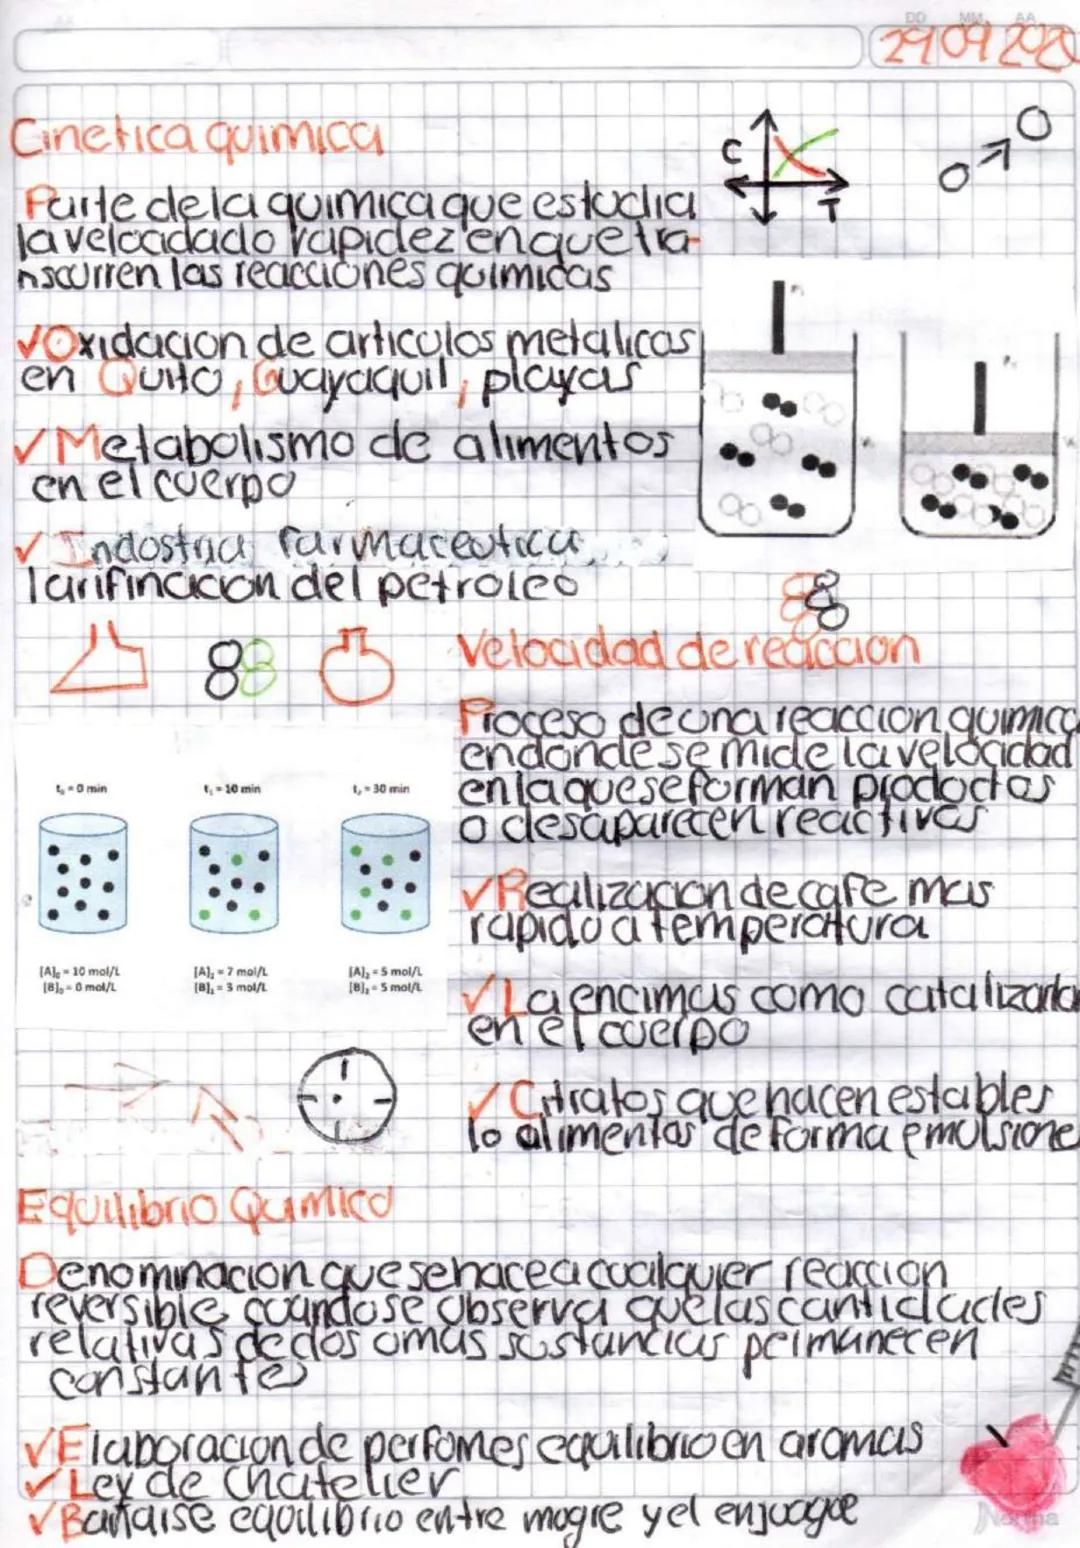 DD MM AA
29 09 202
Cinetica quimica
C
T
Parte de la quimica que estudia
la velocidad o rapidez en que tra-
nscurren las reacciones quimicas
✓Oxidacion de articulos metalicos
en Quito, Guayaquil, playas
✓Metabolismo de alimentos
en el cuerpo
✓Indostria farmaceotica
larifinacion del petroleo
Velocidad de reaccion
Proceso de una reaccion quimica
en donde se mide la velocidad
en la que se forman prodoctos
o desaparecen reactivos
t₀ = 0 min t₁ = 10 min t₂ = 30 min
[A]₀ = 10 mol/L [A]₁ = 7 mol/L [A]₂ = 5 mol/L
[B]₀ = 0 mol/L [B]₁ = 3 mol/L [B]₂ = 5 mol/L
✓Realizacion de cafe mas
rapido a temperatura
✓La encimas como catalizado
en el cuerpo
✓Citratos que hacen estables
lo alimentos de forma emulsione
Equilibrio Quimico
Denominacion que se hace a cualquier reaccion
reversible cuando se observa que las cantidades
relativas de dos o mas sustancias permanecen
constantes
✓Elaboracion de perfomes equilibrio en aromas
✓Ley de Chatelier
✓Bañarse equilibrio entre mogre y el enjuague
Norma